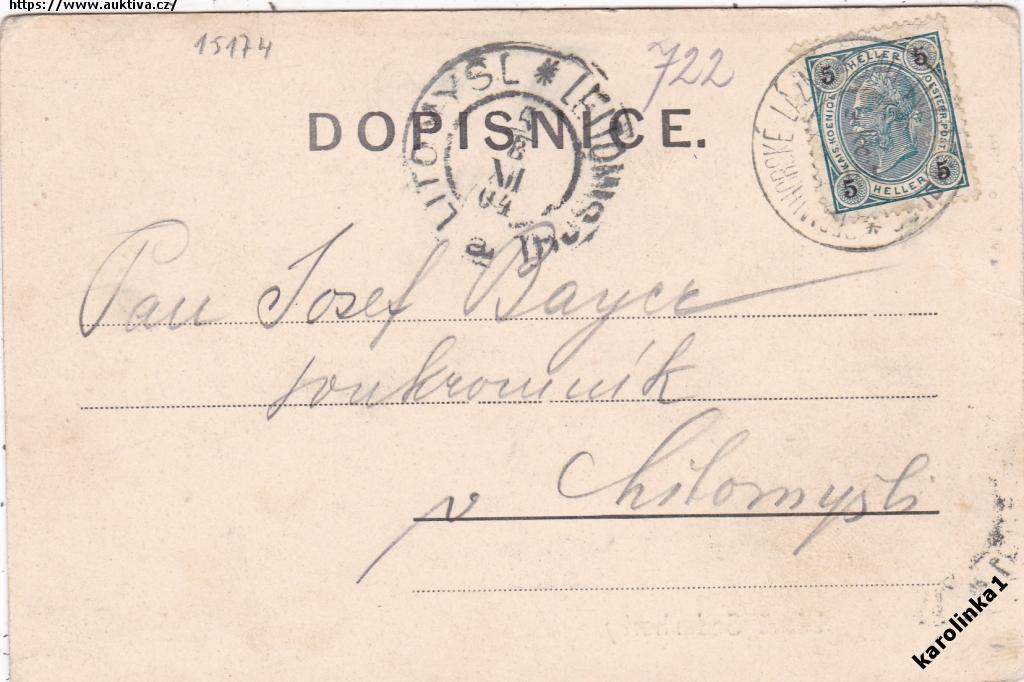 https://www.auktiva.cz/
15174
722
LITOMYŠL * LEITOMISCHL
8 XII 04
a
DOPISNICE.
5 HELLER 5
KAIS-KOENIGL OESTERR. POST
5 HELLER 5
Pan Josef Bayer
soukromník
v Litomyšli
karolinka1